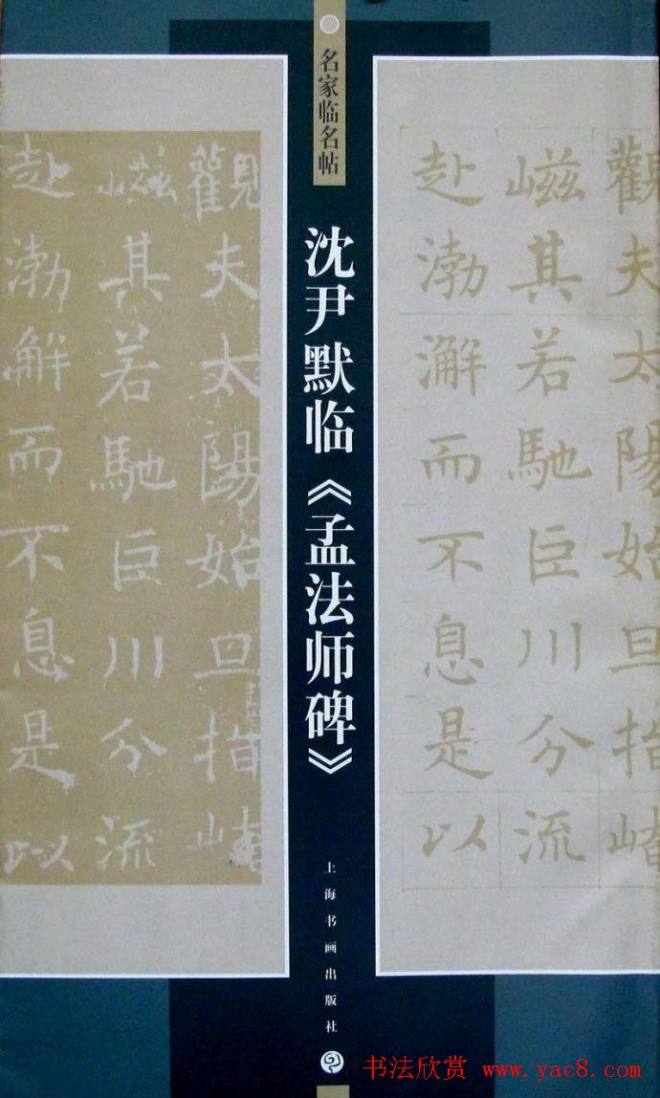 名家临名帖
沈尹默临《孟法师碑》
上海书画出版社
觀夫太陽始旦指崦
嵫其若馳巨川分流
赴渤澥而不息是以
觀夫太陽始旦指崦
嵫其若馳巨川分流
赴渤澥而不息是以
书法欣赏 www.yac8.com